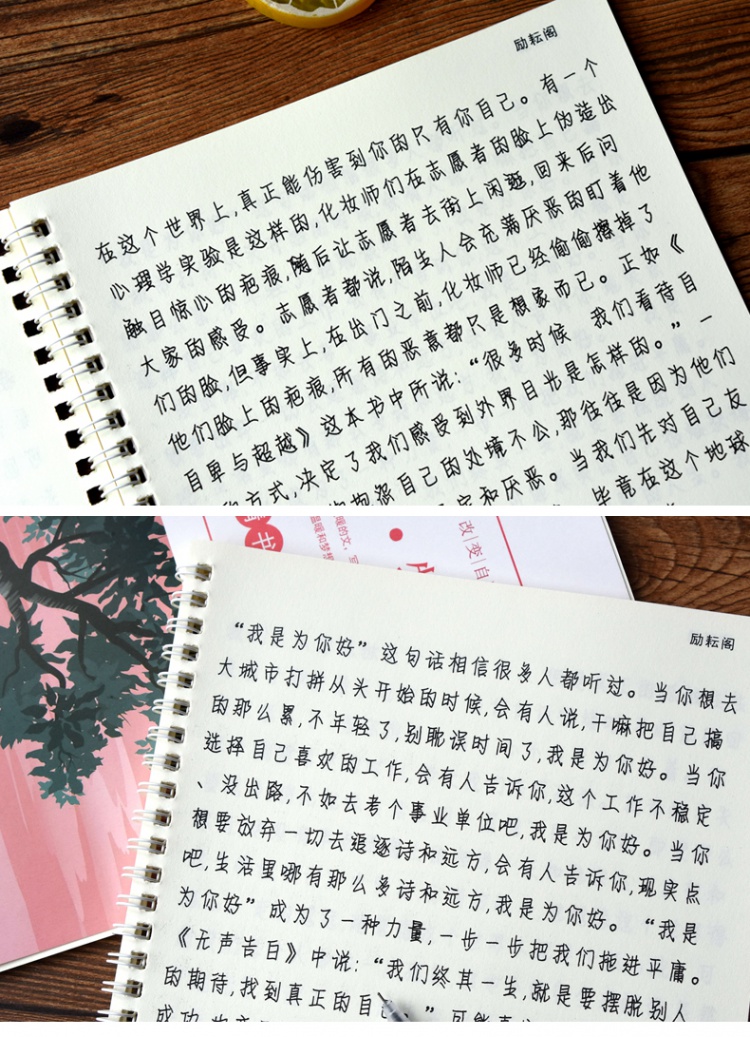 励耘阁
在这个世界上,真正能伤害到你的只有你自己。有一个
心理学实验是这样的,化妆师们在志愿者的脸上伪造出
触目惊心的疤痕,随后让志愿者去街上闲逛,回来后问
大家的感受。志愿者都说,陌生人会充满厌恶的盯着他
们的脸,但事实上,在出门之前,化妆师已经偷偷擦掉了
他们脸上的疤痕,所有的恶意都只是想象而已。正如《
自卑与超越》这本书中所说:“很多时候 我们看待自
方式,决定了我们感受到外界目光是怎样的。”一
抱怨自己的处境不公,那往往是因为他们
和厌恶。当我们先对自己友
毕竟在这个地球
书
改变自
励耘阁
“我是为你好”这句话相信很多人都听过。当你想去
大城市打拼从头开始的时候,会有人说,干嘛把自己搞
的那么累,不年轻了,别耽误时间了,我是为你好。当你
选择自己喜欢的工作,会有人告诉你,这个工作不稳定
、没出路,不如去考个事业单位吧,我是为你好。当你
想要放弃一切去追逐诗和远方,会有人告诉你,现实点
吧,生活里哪有那么多诗和远方,我是为你好。“我是
为你好”成为了一种力量,一步一步把我们拖进平庸。
《无声告白》中说:“我们终其一生,就是要摆脱别人
的期待,找到真正的自己。”可能
成功